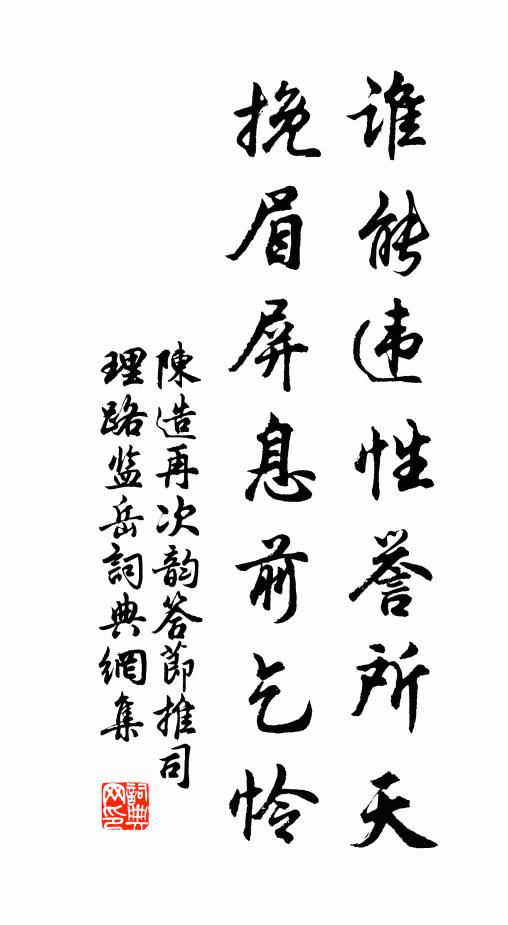 谁能违性誉所天
挽眉屏息前乞怜
陳造再次韵答節推司
理路监岳詞典網集
詞典
网印